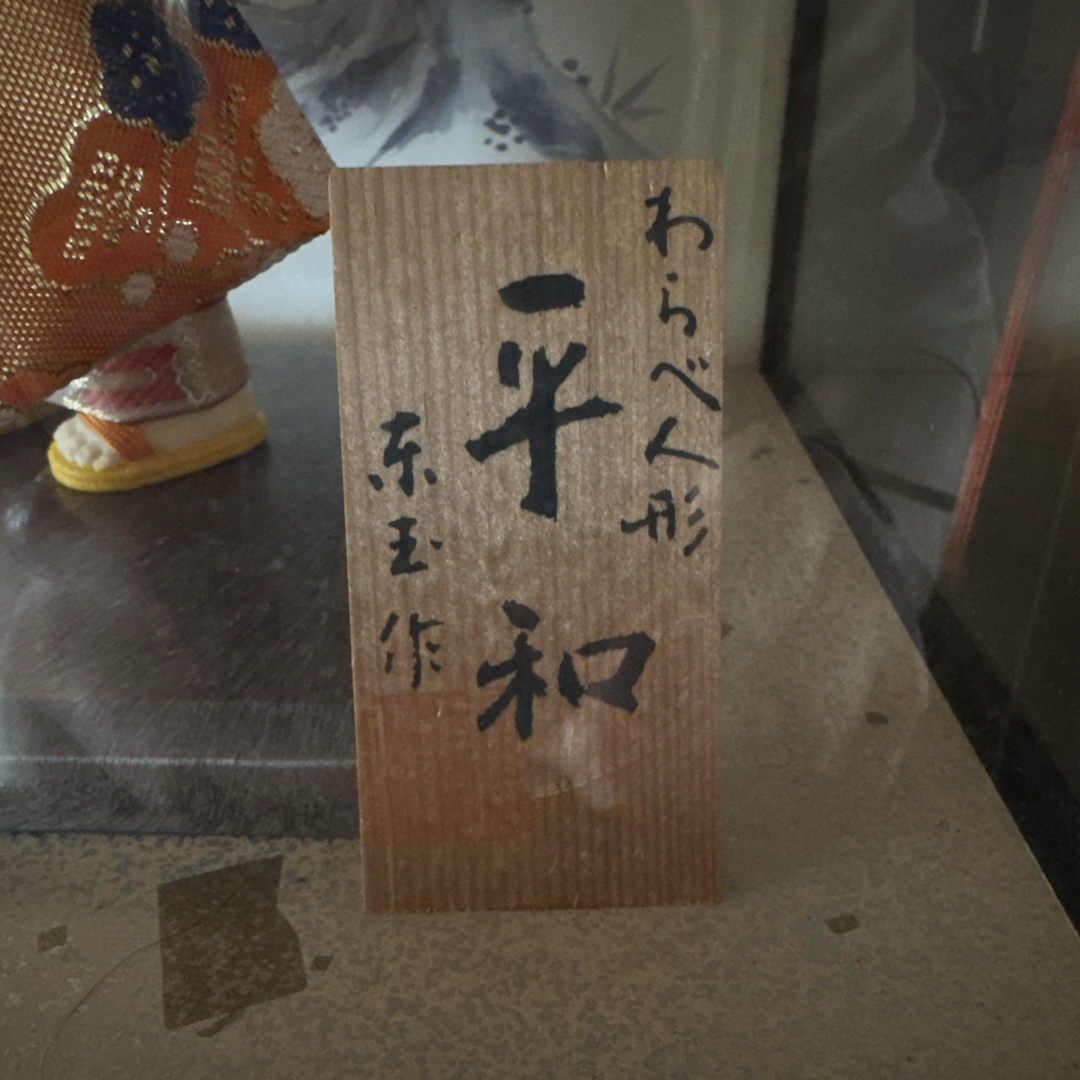 わらべ人形
平和
東玉作